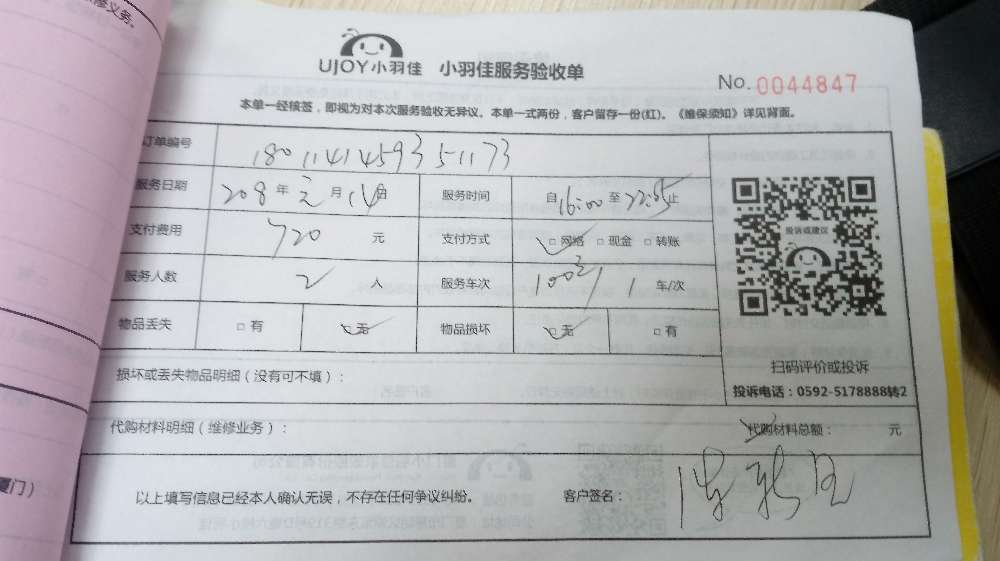 修义务。
厦门）
UJOY小羽佳 小羽佳服务验收单
No. 0044847
本单一经核签，即视为对本次服务验收无异议。本单一式两份，客户留存一份(红)。《维保须知》详见背面。
订单编号 18011414593 51173
服务日期 208年 元月 14日 服务时间 自16:00至22:05止
支付费用 720 元 支付方式 □网络 □现金 □转账
服务人数 2 人 服务车次 1 车/次
物品丢失 □有 □无 物品损坏 □无 □有
投诉或建议
扫码评价或投诉
投诉电话：0592-5178888转2
损坏或丢失物品明细（没有可不填）：
代购材料明细（维修业务）： 代购材料总额： 元
以上填写信息已经本人确认无误，不存在任何争议纠纷。 客户签名：